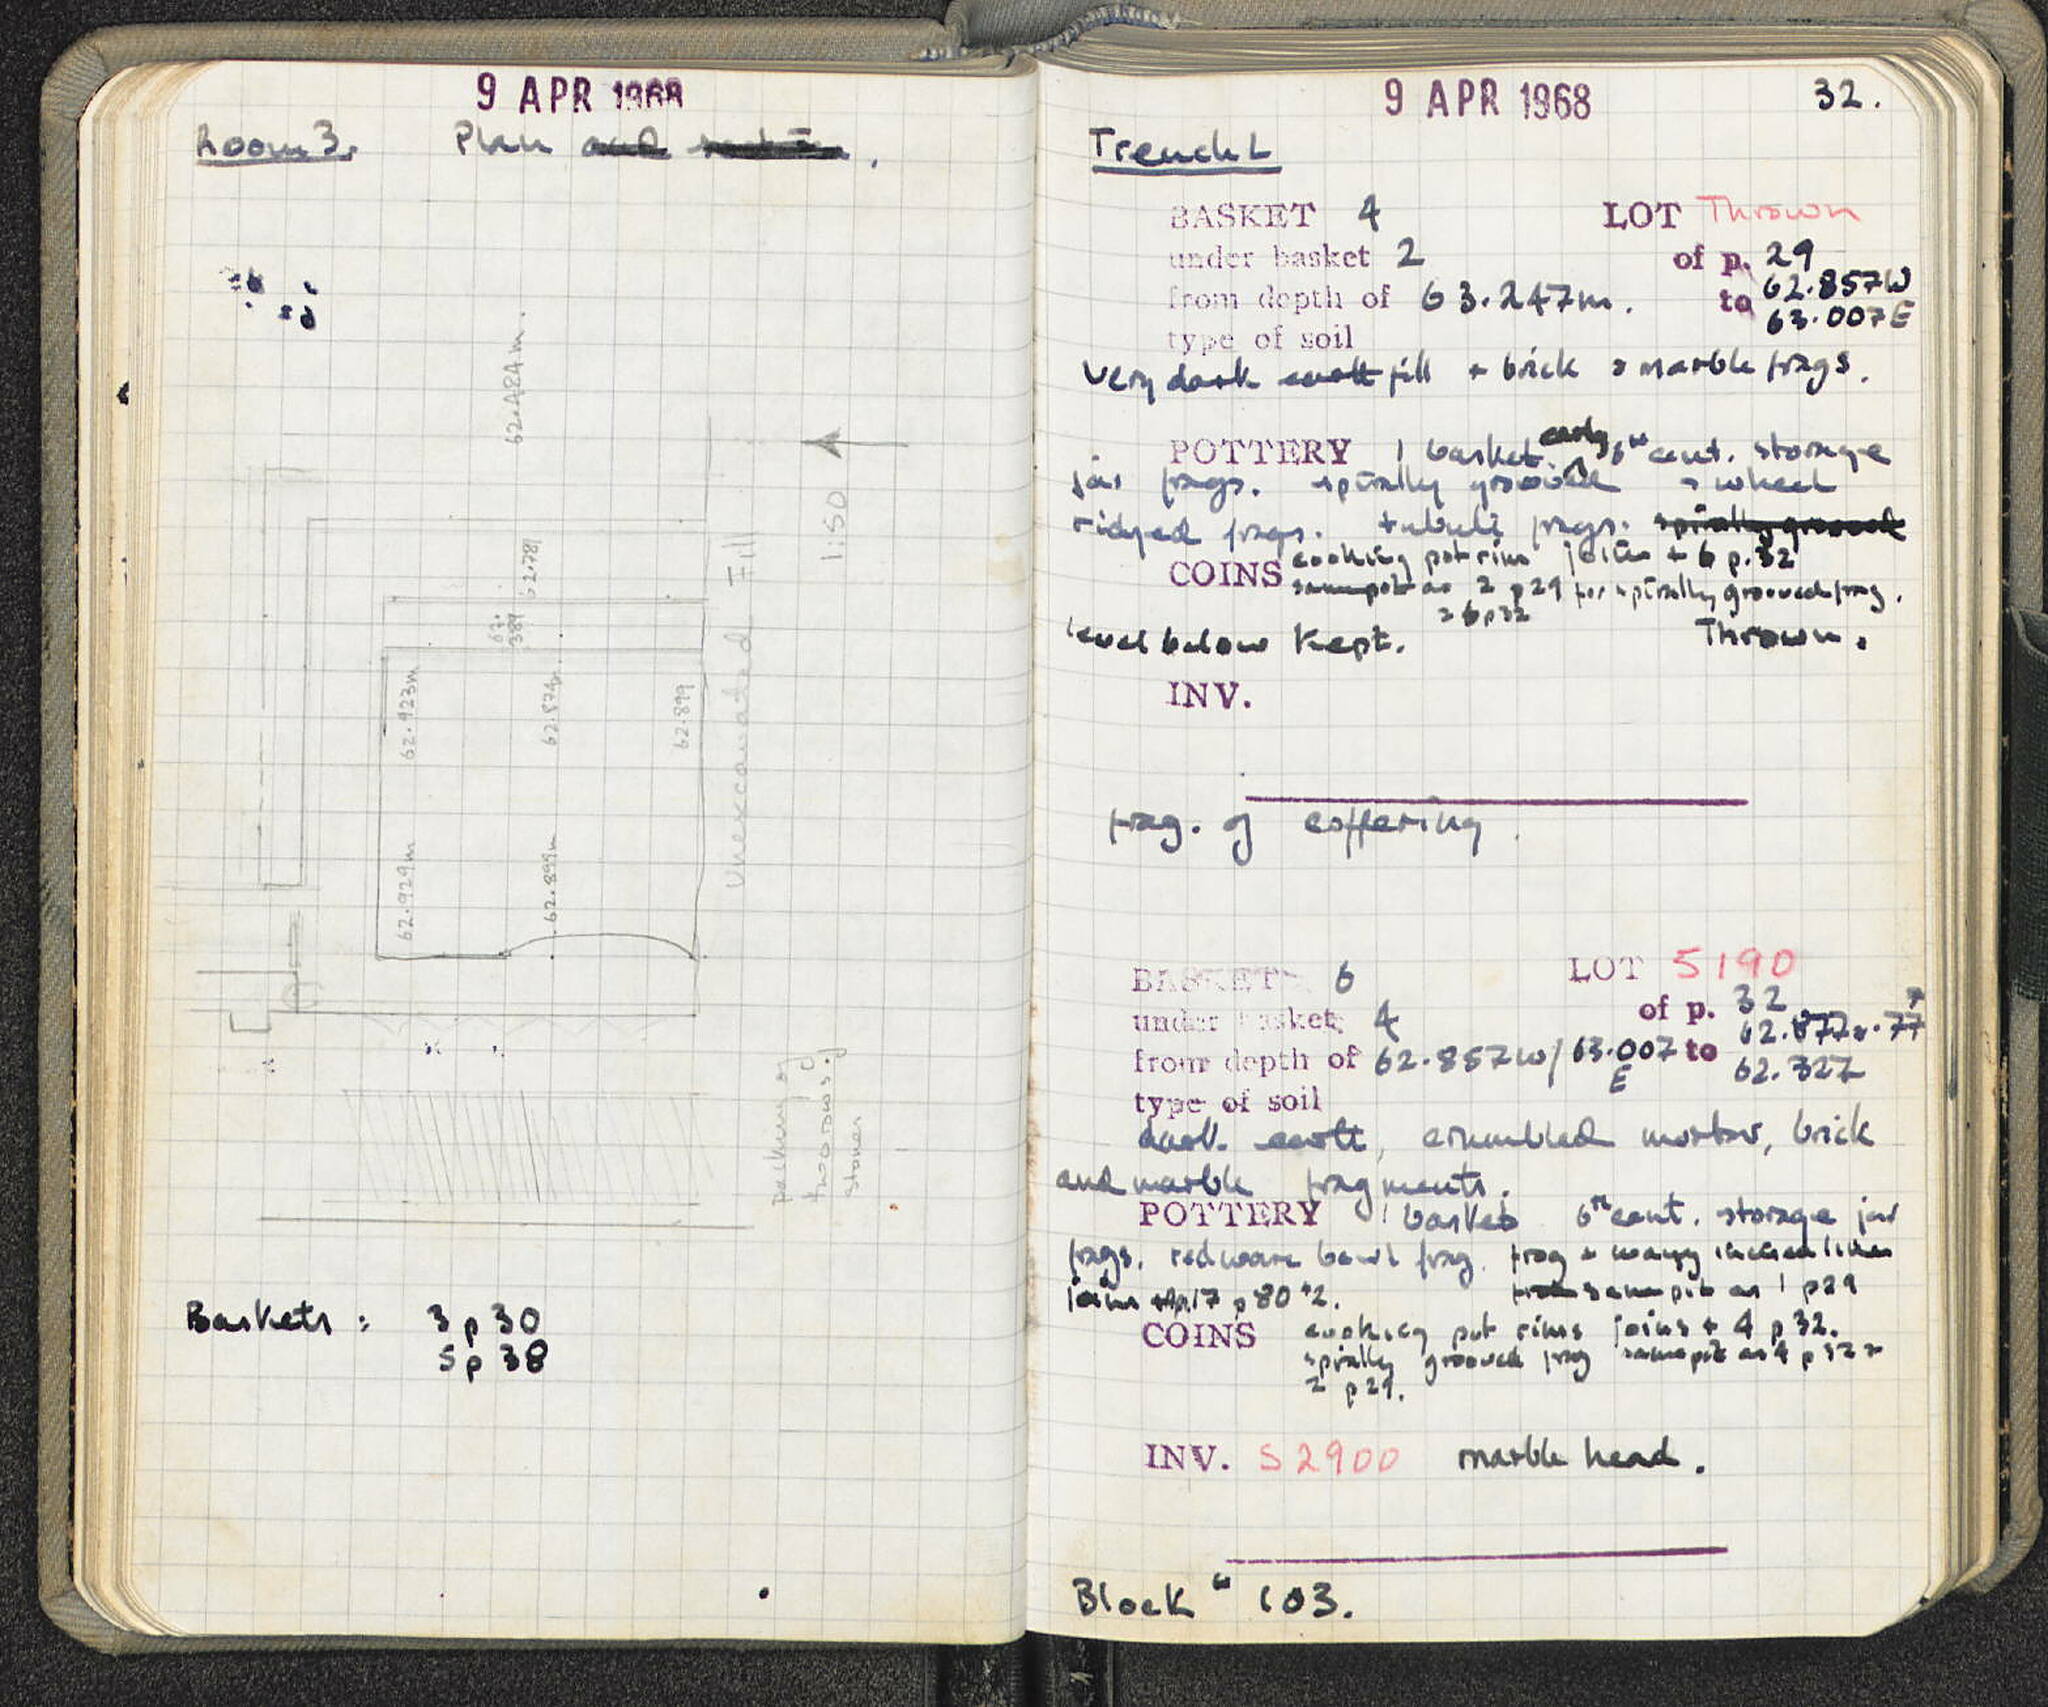 9 APR 1968
Room 3. Plan and section.
62.484m.
62.781
62.
389
62.923m
62.874
62.899
62.929m
62.899m
Unexcavated Fill
1:50
packing of
two rows of
stones
Baskets: 3 p 30
5 p 38
9 APR 1968 32.
Trench L
BASKET 4 LOT Thrown
under basket 2 of p. 29
from depth of 63.247m. to 62.857W
63.007E
type of soil
Very dark earth fill + brick + marble frags.
POTTERY 1 basket. early 6th cent. storage
jar frags. spirally grooved + wheel
ridged frags. tubuli frags. spirally grooved
COINS cooking pot rim joins + 6 p.32
same pot as 2 p29 for spirally grooved frag.
+ 6 p 32
level below kept. Thrown.
INV.
frag. of coffering.
BASKET 6 LOT 5190
under basket 4 of p. 32
from depth of 62.857W/63.007 E to
62.327
type of soil
dark earth, crumbled mortar, brick
and marble fragments.
POTTERY 1 basket 6th cent. storage jar
frags. redware bowl frag. frag + wavy incised lines
joins 17 p 80 +2. from same pot as 1 p29
COINS cooking pot rims joins + 4 p 32.
spirally grooved frag same pot as 4 p 32 +
2 p 29.
INV. S 2900 marble head.
Block 103.